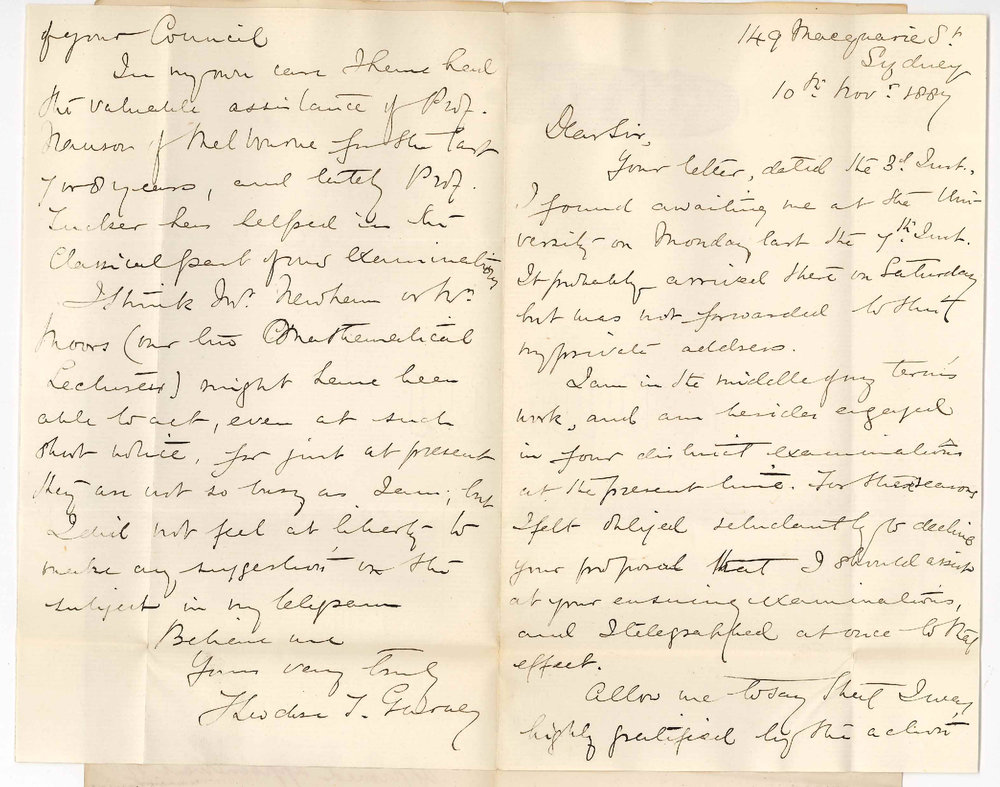 149 Macquarie St
Sydney
10th Novr 1887
Dear Sir,
Your letter, dated the 3d Inst.,
I found awaiting me at the Uni-
versity on Monday last the 7th Inst.
It probably arrived there on Saturday
but was not forwarded to
my private address.
I am in the middle of my term's
work, and am besides engaged
in four district examinations
at the present time. For these reasons
I felt obliged reluctantly to decline
your proposal that I should assist
at your ensuing examinations,
and I telegraphed at once to that
effect.
Allow me to say that I was
highly gratified by the action
of your Council
In my own case I have had
the valuable assistance of Prof.
Nanson of Melbourne for the last
7 or 8 years, and lately Prof.
Tucker has helped in the
Classical part of our examinations
I think Mr Newham or Mr
Moors (our two Mathematical
Lecturers) might have been
able to act, even at such
short notice, for just at present
they are not so busy as I am; but
I did not feel at liberty to
make any suggestion on the
subject in my telegram
Believe me
Yours very truly
Theodore T. Gurney